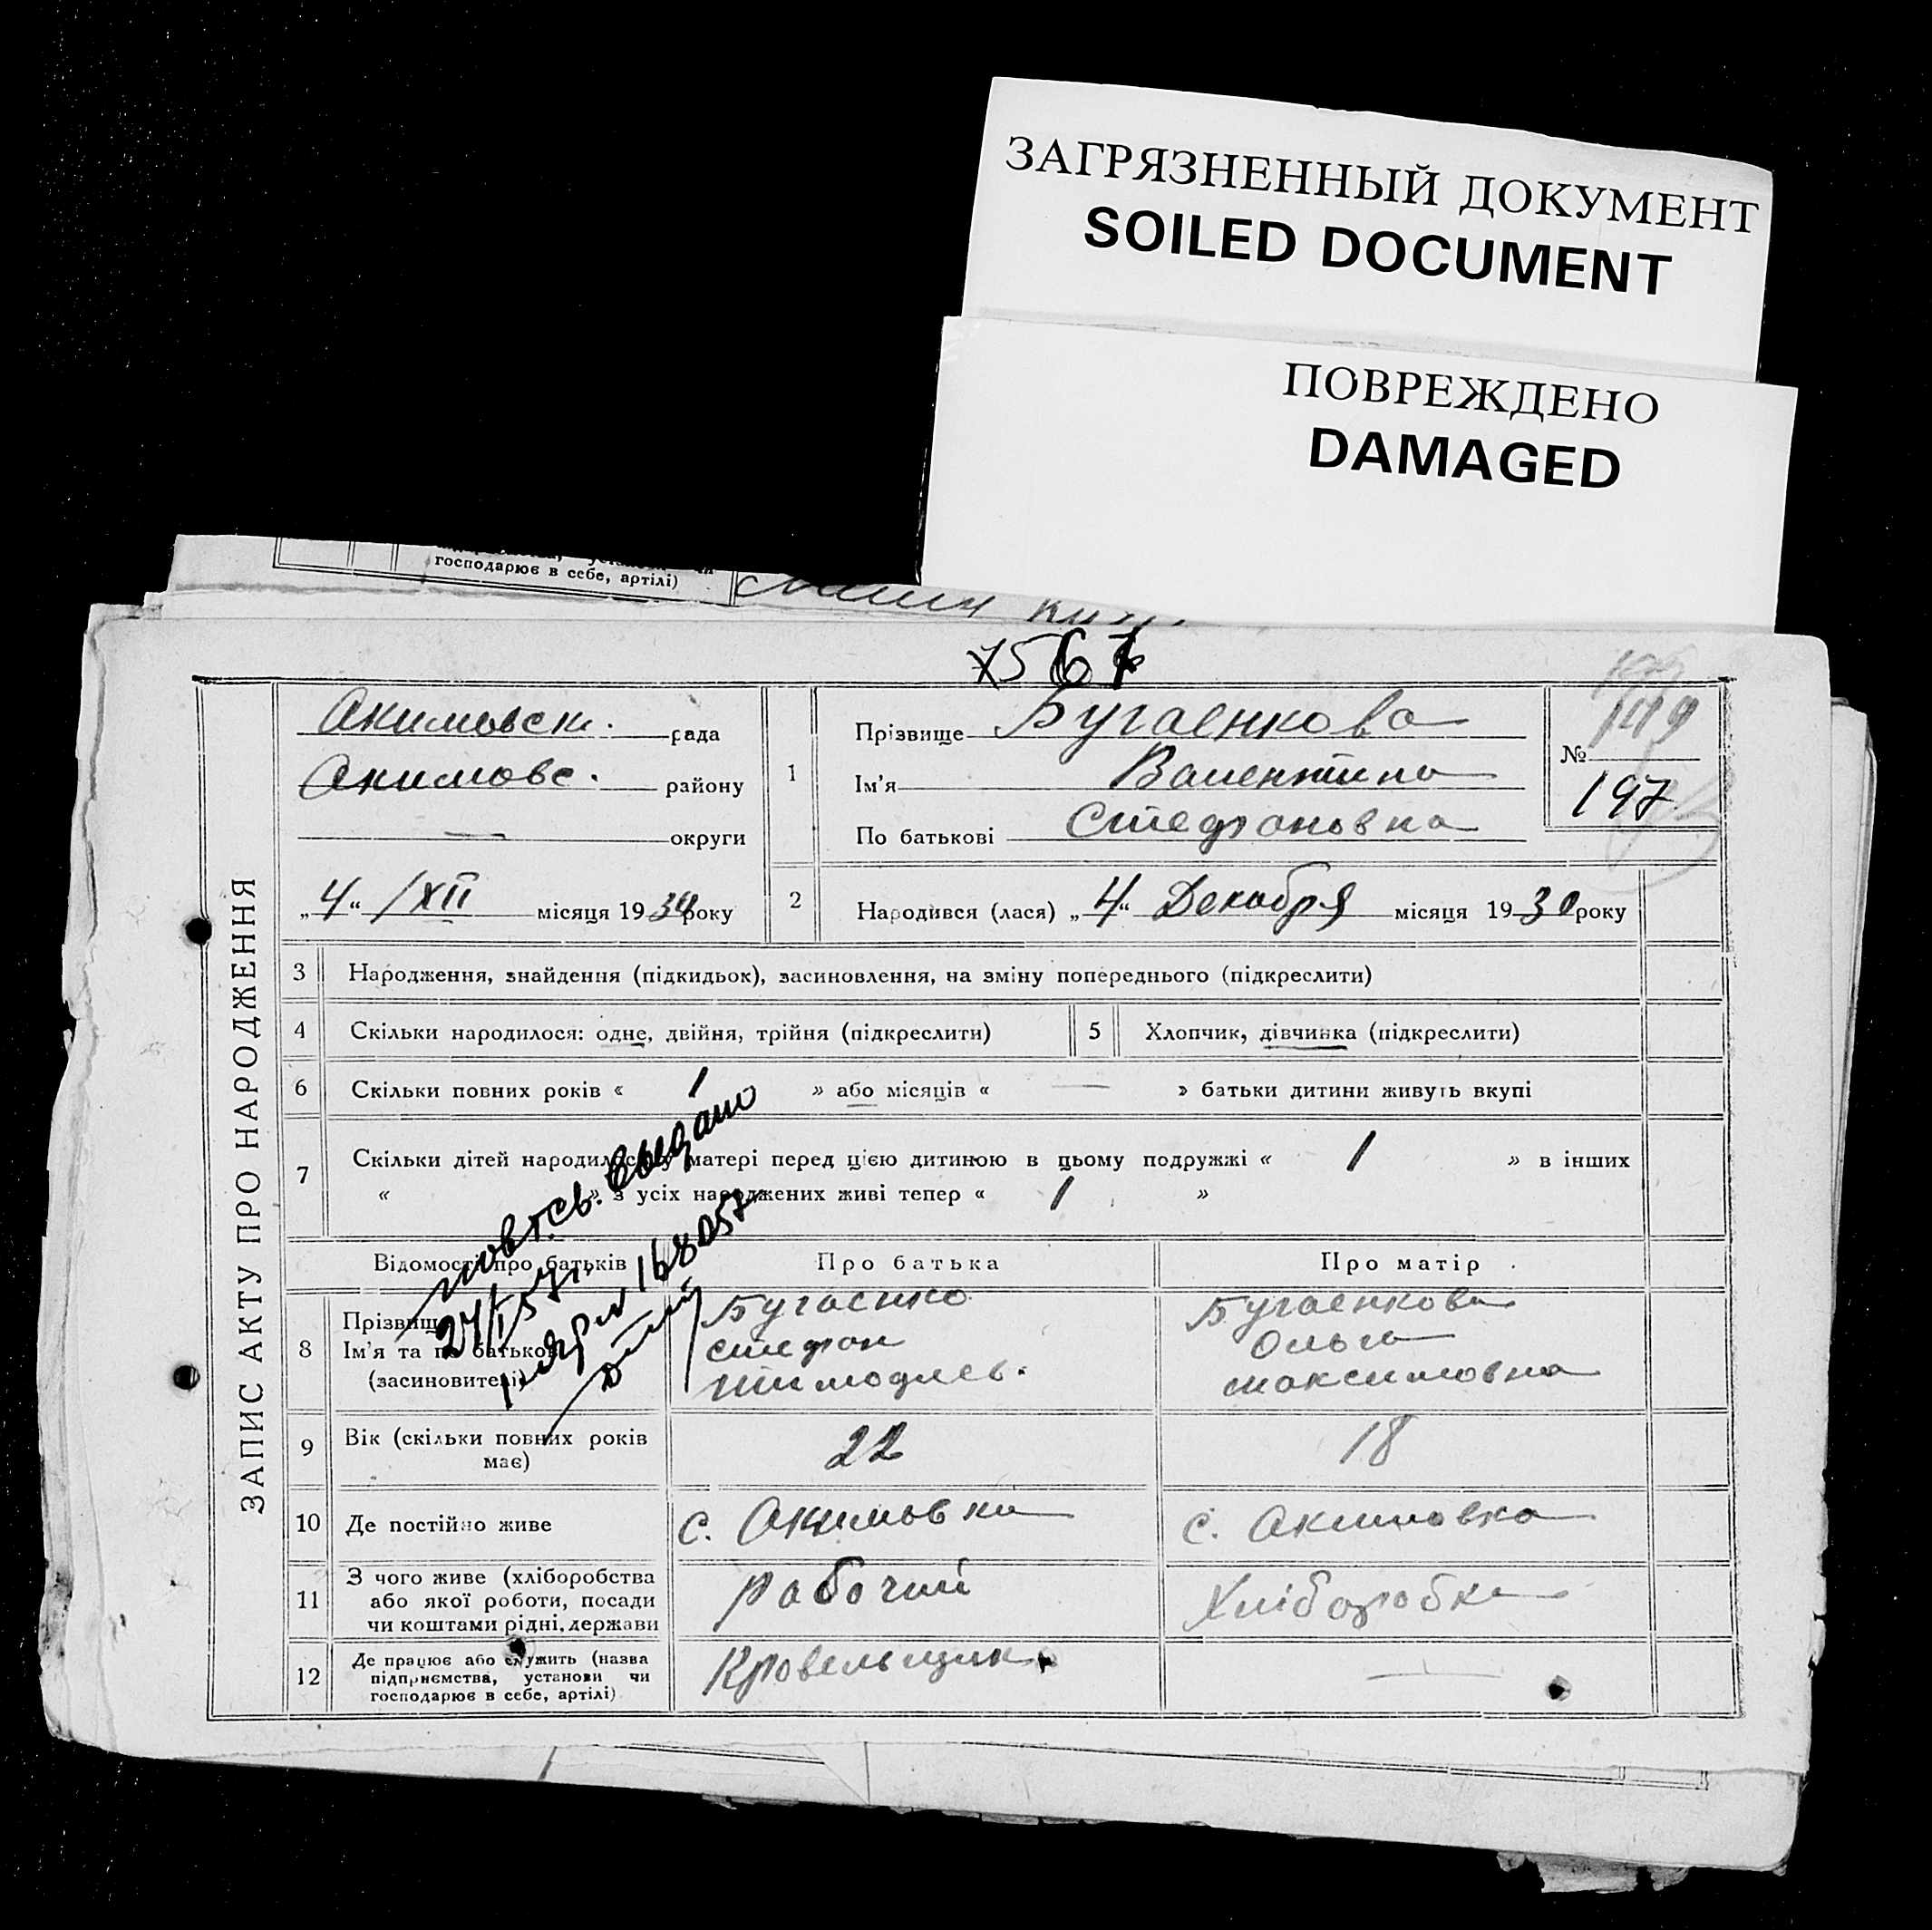 ЗАГРЯЗНЕННЫЙ ДОКУМЕНТ
SOILED DOCUMENT
ПОВРЕЖДЕНО
DAMAGED
господарює в себе, артілі)
ЗАПИС АКТУ ПРО НАРОДЖЕННЯ
Акимовск. рада
Акимовс. району
— округи
„4“ /XII місяця 1930 року
1
Прізвище Бугаенкова
Ім'я Валентина
По батькові Стефановна
№
197
2
Народився (лася) „4“ Декабря місяця 1930 року
3 Народження, знайдення (підкидьок), засиновлення, на зміну попереднього (підкреслити)
4 Скільки народилося: одне, двійня, трійня (підкреслити)
5 Хлопчик, дівчинка (підкреслити)
6 Скільки повних років « 1 » або місяців « — » батьки дитини живуть вкупі
7 Скільки дітей народилося у матері перед цією дитиною в цьому подружжі « 1 » в інших
« » з усіх народжених живі тепер « 1 »
повт. св. выдано
24/I 57г.
168057
Відомості про батьків Про батька Про матір
8 Прізвище
Ім'я та по батькові
(засиновителі)
Бугаенко
Стефан
Тимофеев.
Бугаенкова
Ольга
Максимовна
9 Вік (скільки повних років
має)
22
18
10 Де постійно живе с. Акимовка с. Акимовка
11 З чого живе (хліборобства
або якої роботи, посади
чи коштами рідні, держави
рабочий
Хліборобка
12 Де працює або служить (назва
підприємства, установи чи
господарює в себе, артілі)
Кровельщик
—